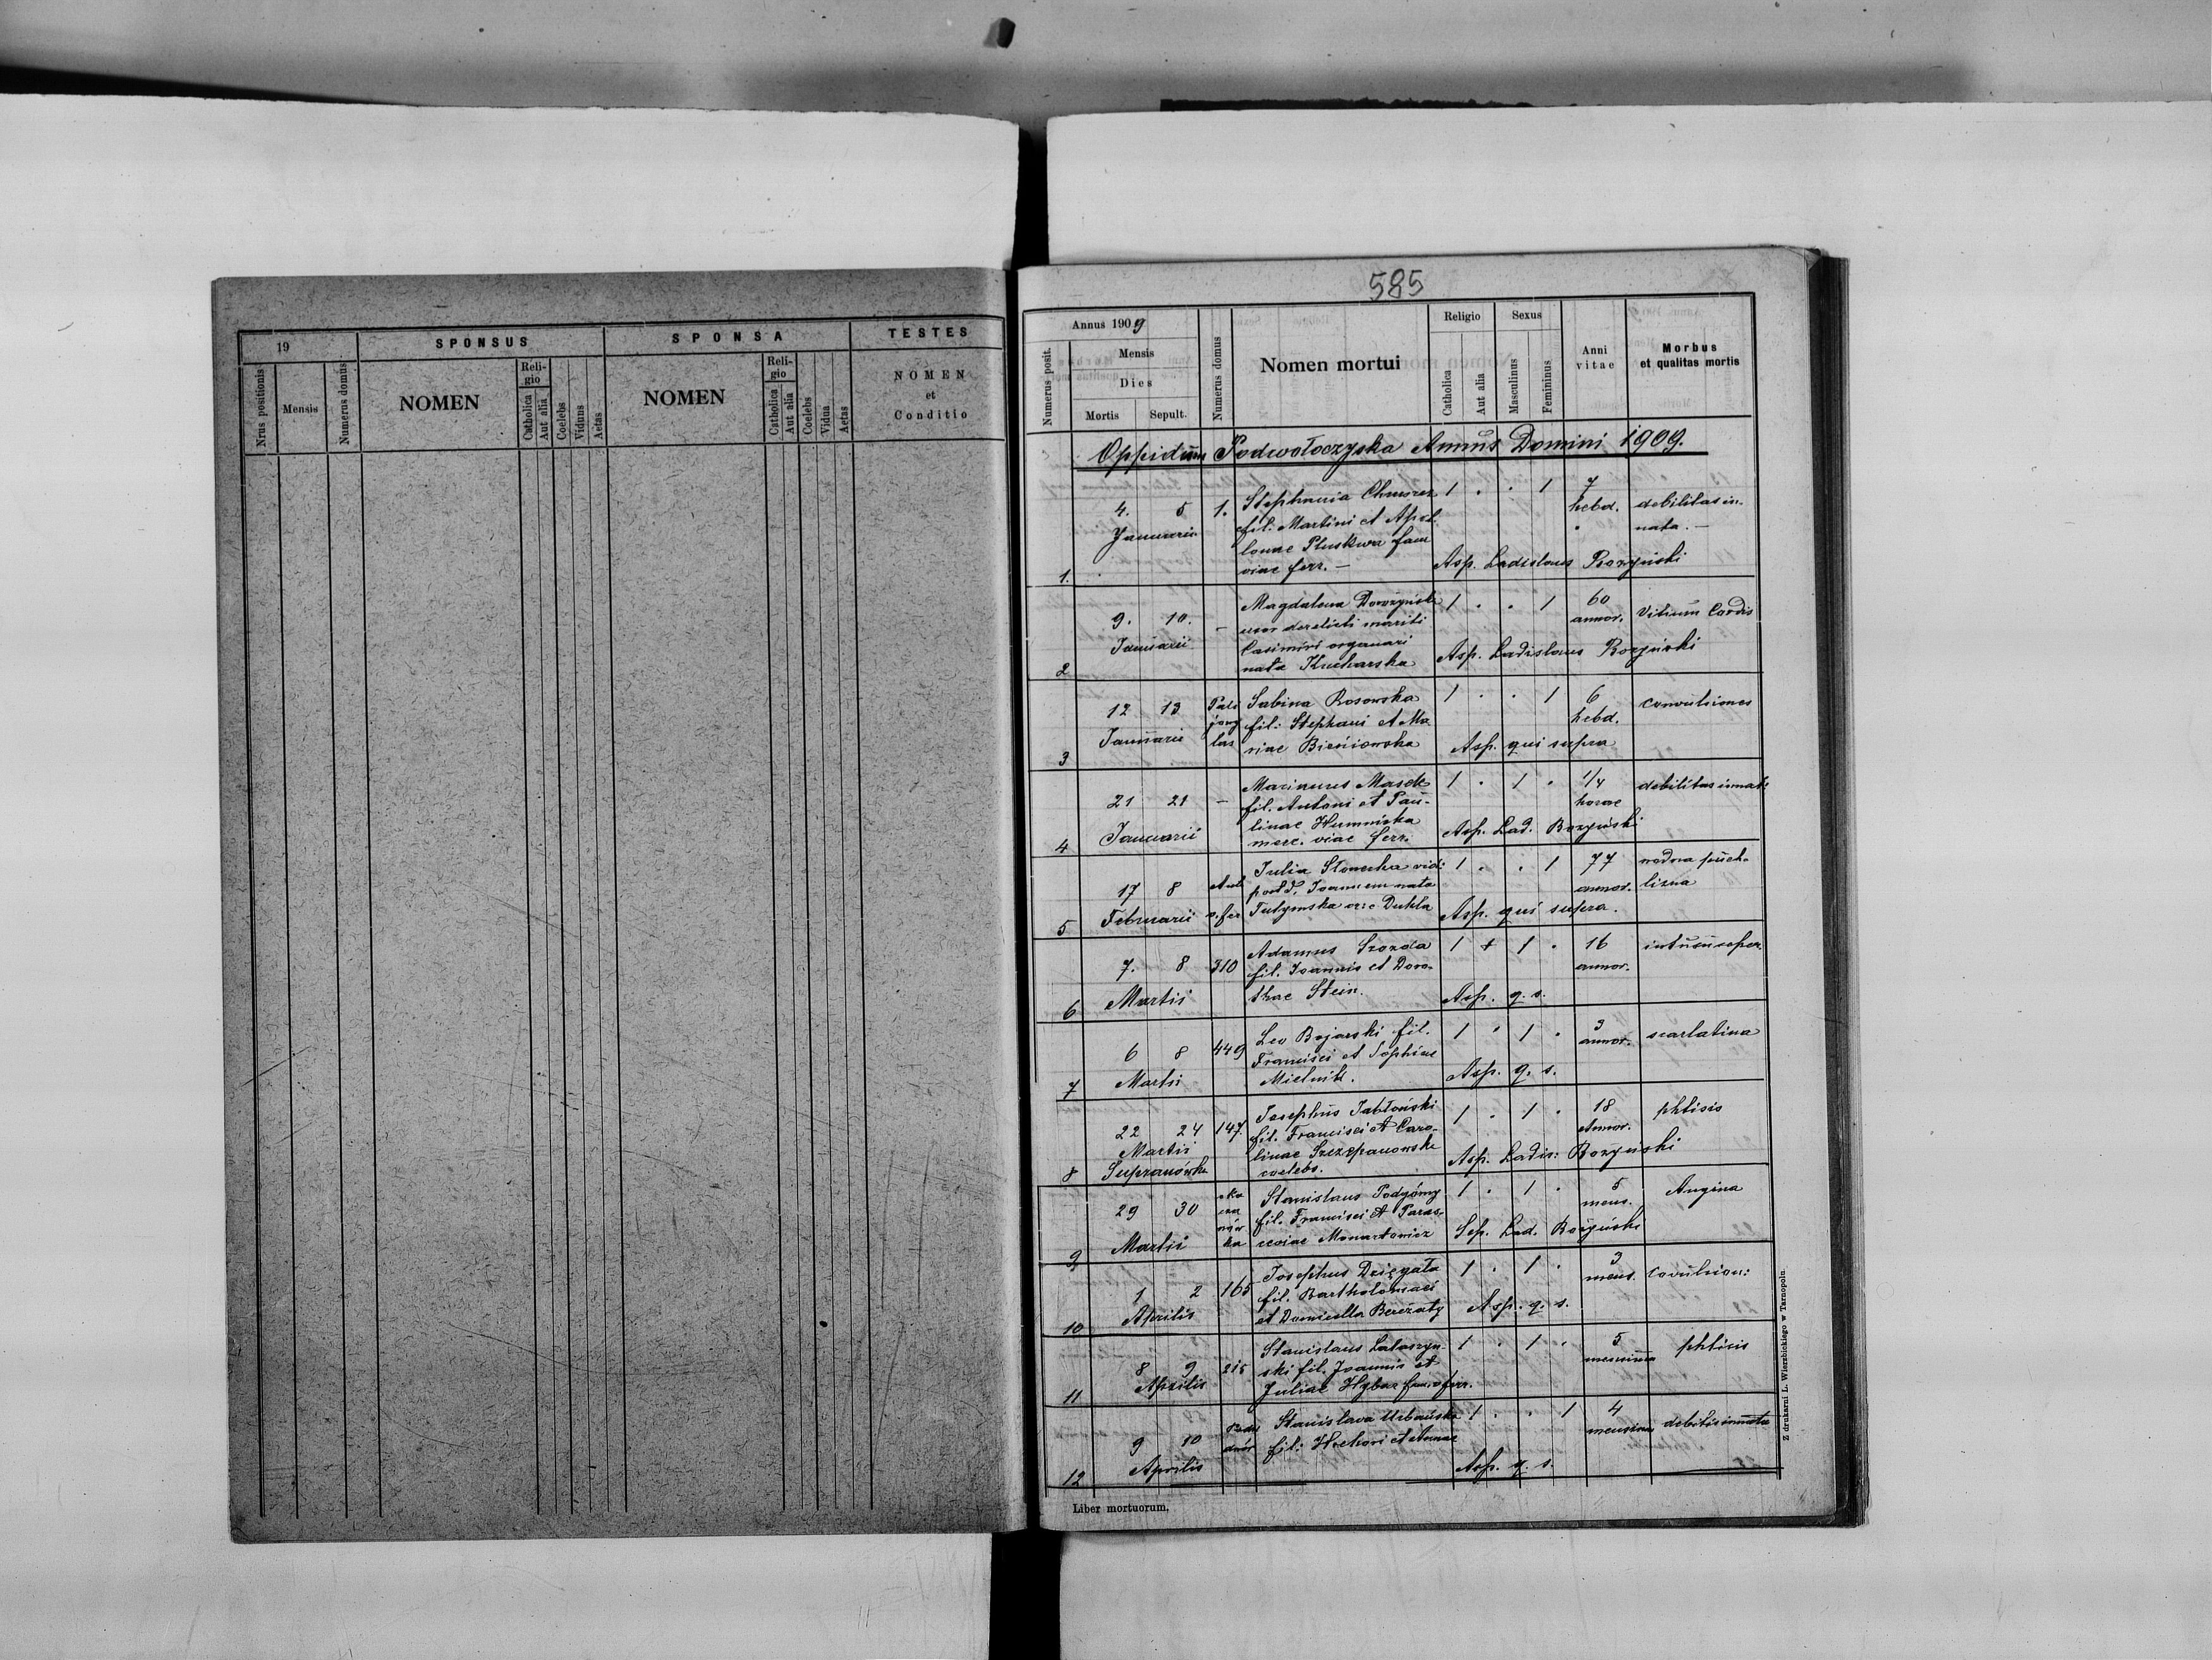 19
SPONSUS
SPONSA
TESTES
Nrus positionis
Mensis
Numerus domus
NOMEN
Reli-
gio
Catholica
Aut alia
Coelebs
Viduus
Aetas
NOMEN
Reli-
gio
Catholica
Aut alia
Coelebs
Vidua
Aetas
NOMEN
et
Conditio
585
Annus 1909
Numerus posit.
Mensis
Dies
Mortis
Sepult.
Numerus domus
Nomen mortui
Religio
Catholica
Aut alia
Sexus
Masculinus
Femininus
Anni
vitae
Morbus
et qualitas mortis
Oppidum Podwołoczyska Annus Domini 1909.
1.
4. 5
Januarii
1.
Stephania
fil. Martini et Apol
loniae Pluskwa fam
viae ferr. —
1 . . 1
7
hebd.
debilitas in-
nata. —
Asp. Ladislaus
2
9. 10.
Januarii
—
Magdalena
uxor derelicti mariti
Casimiri organari
nata Kucharska
1 . . 1
60
annor.
Vitium Cordis
Asp. Ladislaus
3
12 13
Januarii
Sabina Rosowska
fil: Stephani et Ma
riae
1 . . 1
6
hebd.
convulsiones
Asp. qui supra
4
21 21
Januarii
—
Marianus Masek
fil. Antoni et Pau-
linae Humniska
merc. viae ferr.
1 . 1 .
1/4
horae
debilitas innat:
Asp. Lad.
5
17 8
Februarii
Julia vid:
post d. Joannem nata
Dukla
1 . . 1
77
annor.
wodna puch-
lizna
Asp. qui supra.
6
7. 8
Martii
310
Adamus
fil. Joannis et Doro-
thae Stein.
1 + 1 .
16
annor.
Asp. q. s.
7
6 8
Martii
449
Leo Bojarski fil.
Francisci et Sophiae
Mielnik.
1 . 1 .
3
annor.
scarlatina
Asp. q. s.
8
22 24
Martii
Supranówka
147.
Josephus Jabłoński
fil. Francisci et Caro-
linae Szczepanowska
coelebs.
1 . 1 .
18
Annor.
phtisis
Asp. Ladis:
9
29 30
Martii
Stanislaus Podgórny
fil. Francisci et Paras-
ceviae
1 . 1 .
5
mens.
Angina
Sep. Lad.
10
1 2
Aprilis
165
Josephus Dzięgała
fil. Bartholomaei
et Domicella Bereżaty
1 . 1 .
3
mens.
Asp. q. s.
11
8 9
Aprilis
215
Stanislaus Lataszyn-
ski fil. Joannis et
Juliae
1 . 1 .
5
mensium
phtisis
12
9 10
Aprilis
Stanislava Urbańska
fil: et Annae
1 . . 1
4
mensium
Asp. q. s.
Liber mortuorum.
Z drukarni L. Wierzbickiego w Tarnopolu.